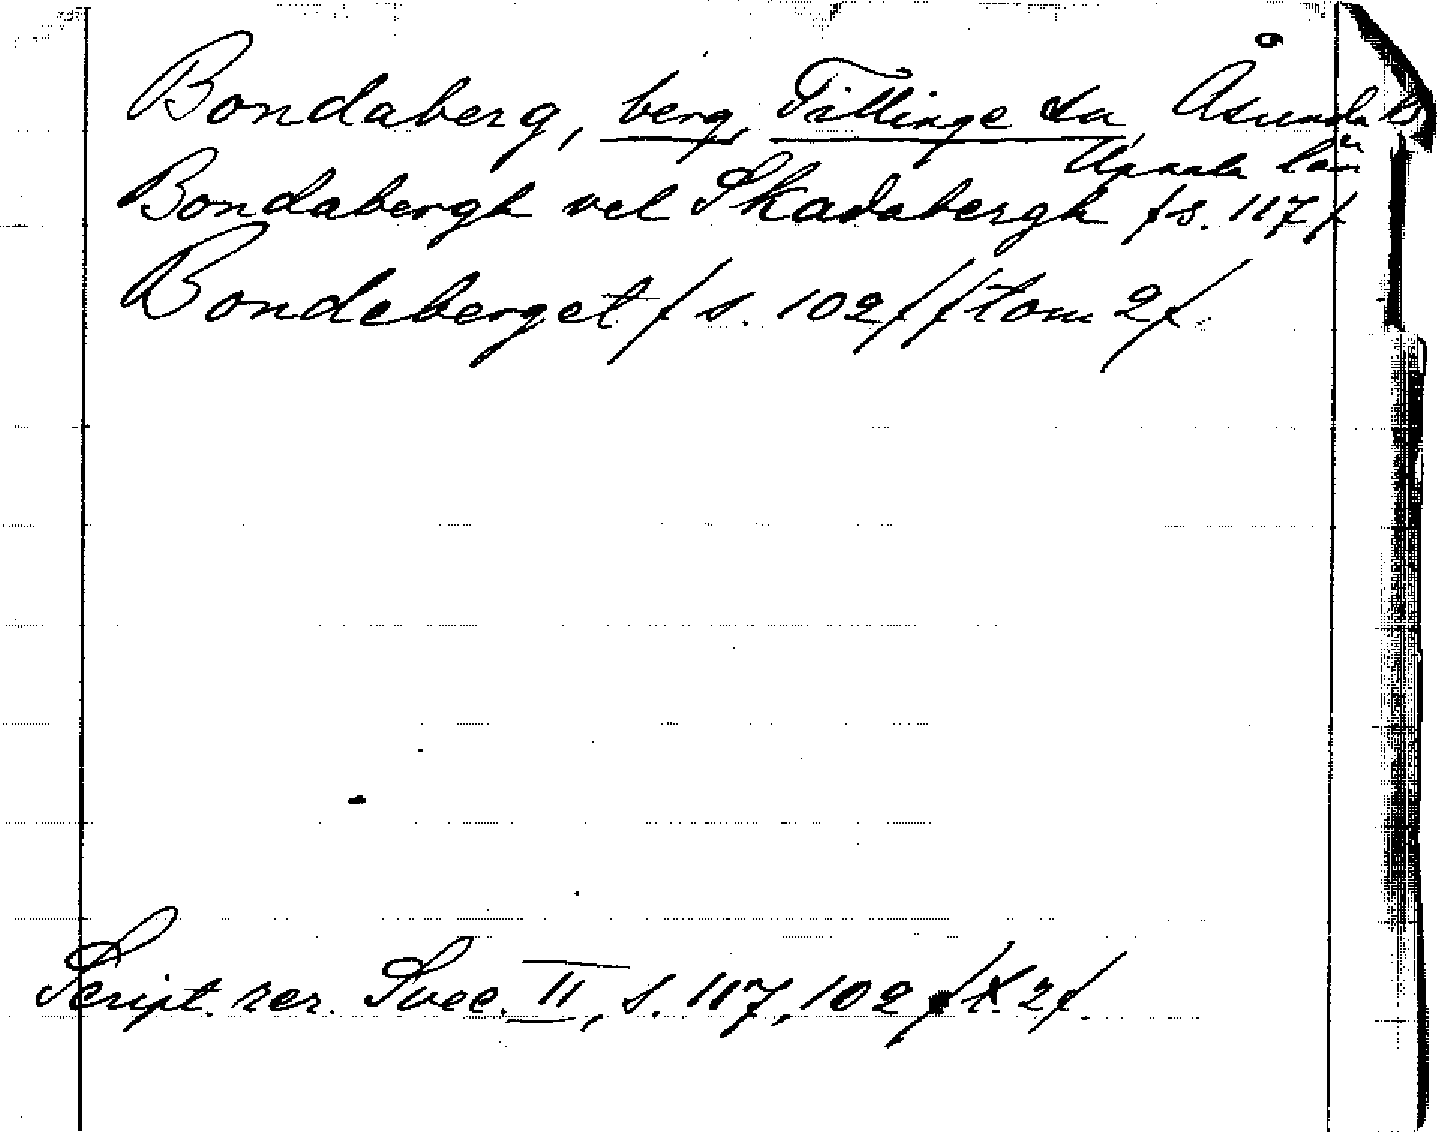 Bondaberg, berg, Tillinge sn, Åsunda hd
Uppsala län
Bondabergh vel Skadabergh /s. 117/
Bondeberget /s. 102/ /tom 2/
Script. rer. Svec. II, s. 117, 102 /t. 2/.